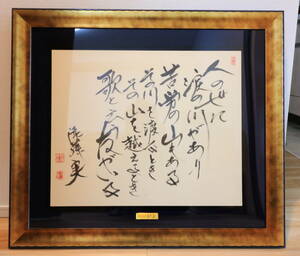 人の世に
涙の川があり
苦労の山もある
その川を渡るとき
その山を越えるとき
歌と云う友がいる
遠藤実